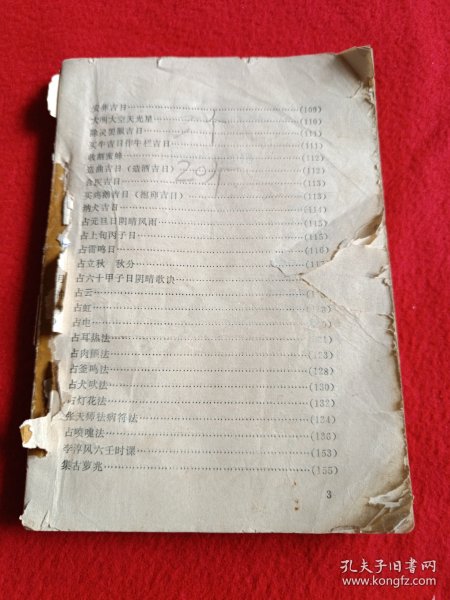 安葬吉日……(109)
大明大空天光星……(110)
除灵罢服吉日……(111)
买牛吉日作牛栏吉日……(111)
收割蜜蜂……(112)
造曲吉日（造酒吉日）……(112)
合医吉日……(113)
买鸡鹅吉日（抱卵吉日）……(113)
纳犬吉日……(114)
占元旦日阴晴风雨……(115)
占上旬丙子日……(115)
占雷鸣日……(116)
占立秋 秋分……
占六十甲子日阴晴歌诀
占云……
占虹……
占电……
占耳热法……
占肉颤法……(123)
占釜鸣法……(128)
占犬吠法……(130)
占灯花法……(132)
张天师祛病符法……(134)
占喷嚏法……(136)
李淳风六壬时课……(153)
集古梦兆……(155)
3
孔夫子旧书网
www.kongfz.com